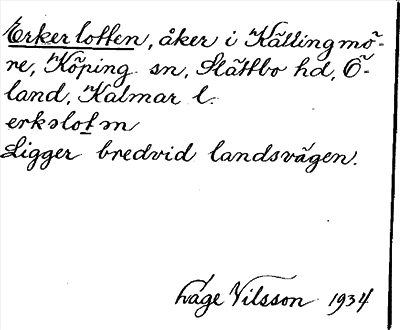 Erkerlotten, åker i Källingmö-
re, Köping sn, Slättbo hd, Ö-
land, Kalmar l.
erkəlotən
Ligger bredvid landsvägen.
Åage Nilsson 1934